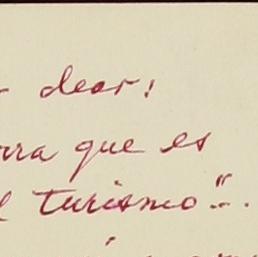 dear!
rra que es
l turismo"..